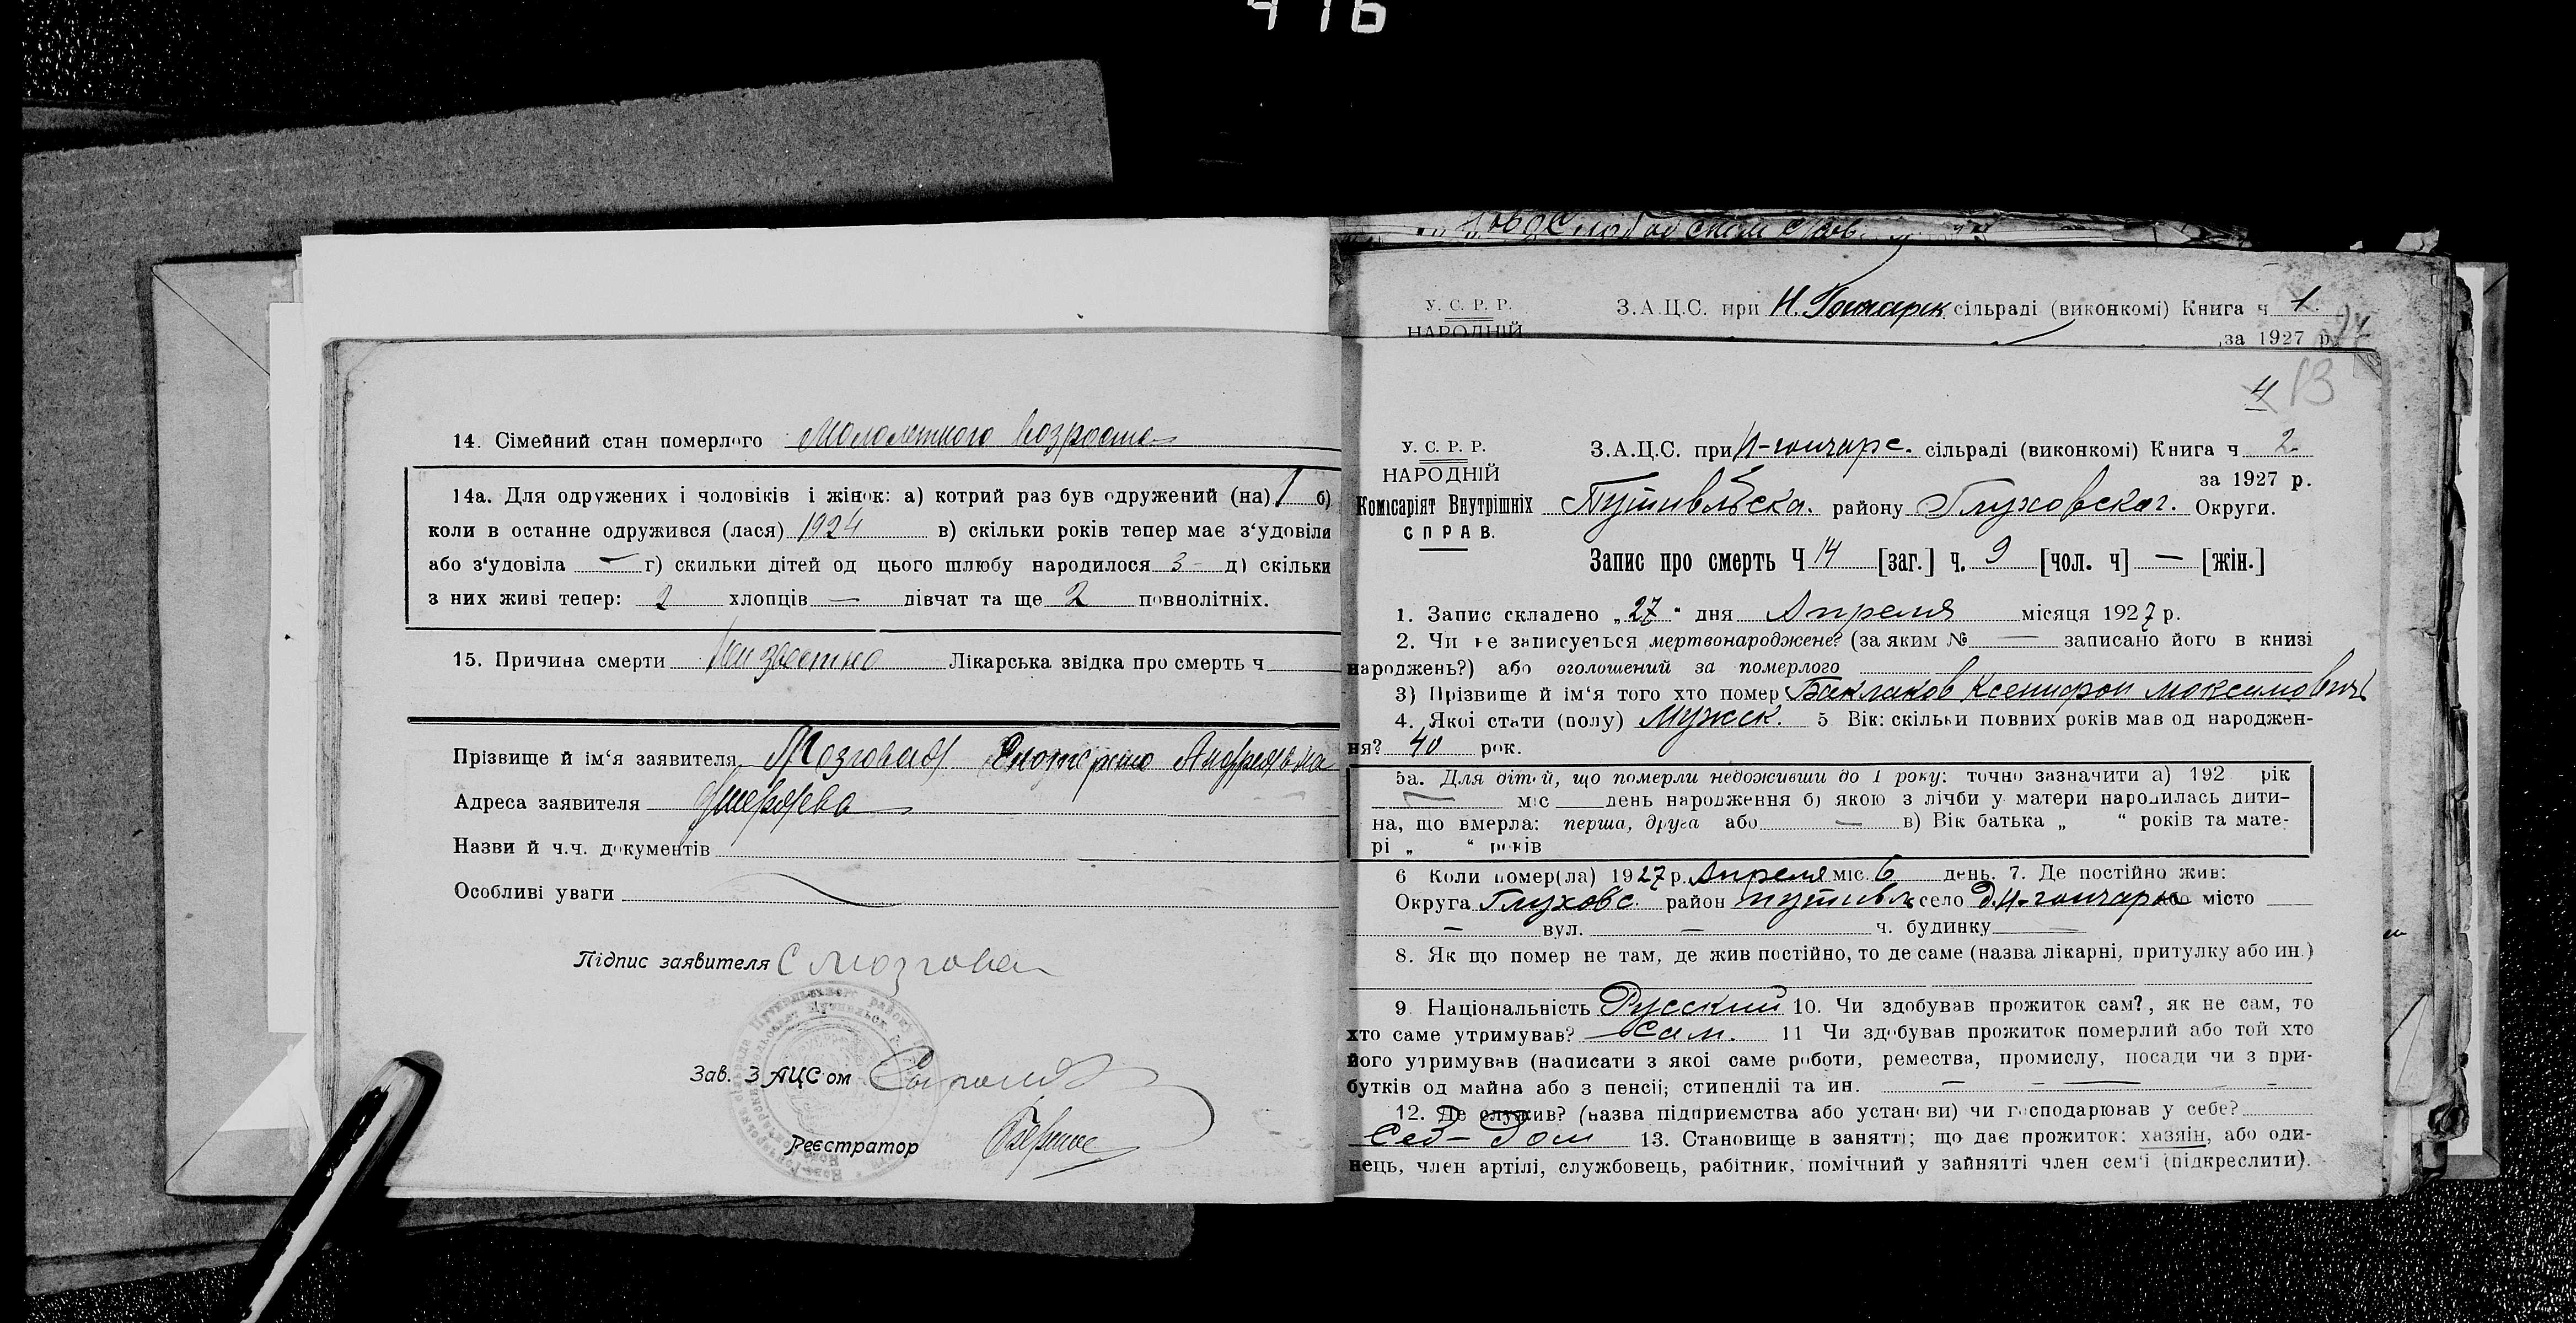 416
14. Сімейний стан померлого Мололетнього возроста
14а. Для одружених і чоловіків і жінок: а) котрий раз був одружений (на) 1 б)
коли в останне одружився (лася) 1924 в) скільки років тепер має з'удовіли
або з'удовіла — г) скильки дітей од цього шлюбу народилося 3 – д) скільки
з них живі тепер: 2 хлопців — дівчат та ще 2 повнолітніх.
15. Причина смерти Лікарська звідка про смерть ч
Прізвище й ім'я заявителя Мозговая Андреевна
Адреса заявителя
Назви й ч.ч. документів
Особливі уваги
Підпис заявителя С Мозговая
Зав. ЗАЦСом
Реєстратор
У. С. Р. Р.
НАРОДНІЙ
З.А.Ц.С. при Н. Гончарск сільраді (виконкомі) Книга ч 1.
за 1927 р.
4 13
У. С. Р. Р.
НАРОДНІЙ
Комісаріят Внутрішніх
СПРАВ.
З.А.Ц.С. при Н-гончарс. сільраді (виконкомі) Книга ч 2.
за 1927 р.
Путивльска. району Глуховског. Округи.
Запис про смерть Ч 14 [заг.] ч. 9 [чол. ч] — [жін.]
1. Запис складено „27" дня Апреля місяця 1927 р.
2. Чи не записується мертвонароджене? (за яким № — записано його в книзі
народжень?) або оголошений за померлого
3) Прізвище й ім'я того хто помер Бакланов Ксенифон Моксимович
4. Якої стати (полу) Мужск. 5 Вік: скільки повних років мав од народжен-
ня? 40 рок.
5а. Для дітей, що померли недоживши до 1 року: точно зазначити а) 192 рік
— міс день народження б) якою з лічби у матери народилась дити-
на, що вмерла: перша, друга або — в) Вік батька „ " років та мате-
рі „ " років
6 Коли помер(ла) 1927 р. Апреля міс. 6 день. 7. Де постійно жив:
Округа Глуховс. район путивл село д.Н-гончары або місто
— вул. — ч. будинку —
8. Як що помер не там, де жив постійно, то де саме (назва лікарні, притулку або ин.)
9 Національність Русский 10. Чи здобував прожиток сам?, як не сам, то
хто саме утримував? сам. 11 Чи здобував прожиток померлий або той хто
його утримував (написати з якоі саме роботи, ремества, промислу, посади чи з при-
бутків од майна або з пенсіі; стипендіі та ин. — — —
12. Де служив? (назва підприемства або установи) чи господарював у себе?
13. Становище в занятті; що дає прожиток: хазяін, або оди-
нець, член артілі, службовець, рабітник, помічний у зайнятті член сем'і (підкреслити).